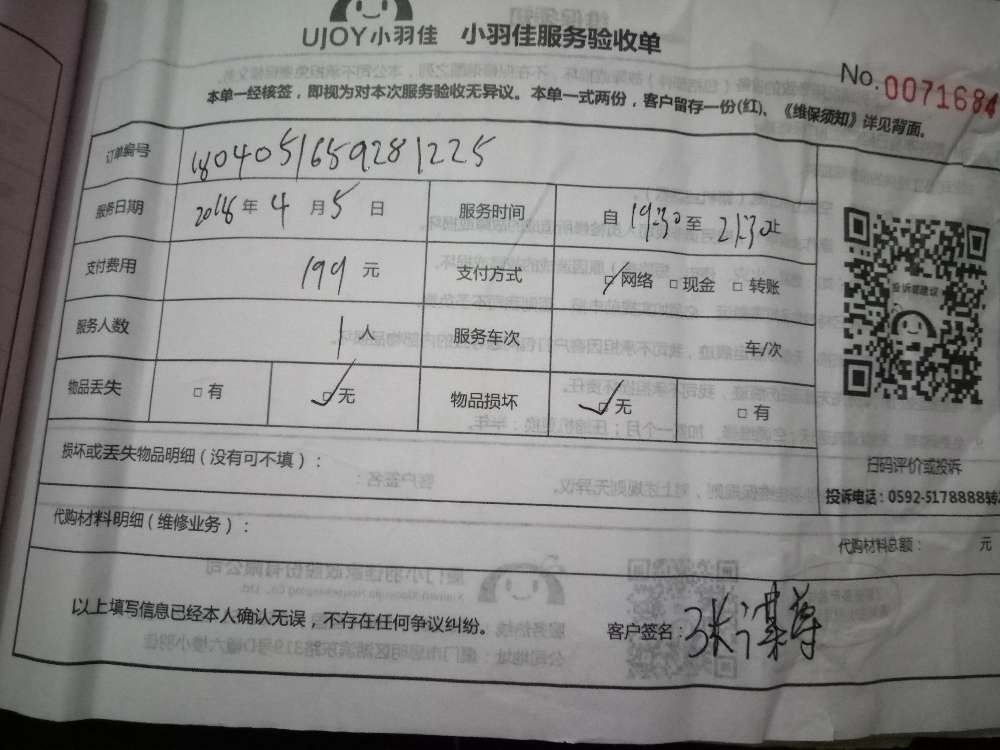 UJOY小羽佳 小羽佳服务验收单
No. 0071684
本单一经核签，即视为对本次服务验收无异议。本单一式两份，客户留存一份(红)、《维保须知》详见背面。
订单编号 1804051659281225
服务日期 2018 年 4 月 5 日 服务时间 自 19:30 至 21:30 止
支付费用 199 元 支付方式 ☑网络 □现金 □转账
投诉或建议
服务人数 1 人 服务车次 车/次
物品丢失 □有 ☑无 物品损坏 ☑无 □有
损坏或丢失物品明细（没有可不填）：
扫码评价或投诉
投诉电话：0592-5178888转
代购材料明细（维修业务）：
代购材料总额： 元
以上填写信息已经本人确认无误，不存在任何争议纠纷。
客户签名：张